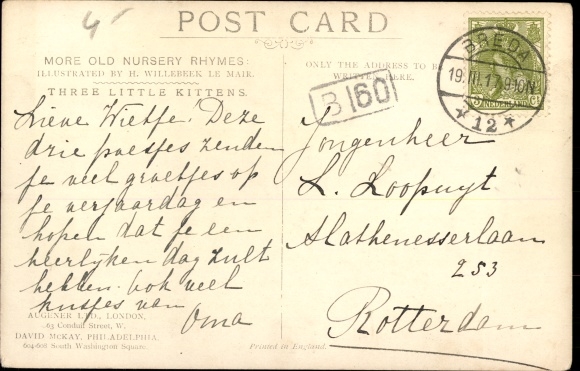 4
POST CARD
MORE OLD NURSERY RHYMES:
ILLUSTRATED BY H. WILLEBEEK LE MAIR.
THREE LITTLE KITTENS.
Lieve Wietse! Deze
drie poesjes zenden
je veel groetjes op
je verjaardag en
hopen dat je een
heerlijken dag zult
hebben. ook veel
kusjes van
Oma
AUGENER LTD., LONDON,
63 Conduit Street, W.
DAVID McKAY, PHILADELPHIA,
604-608 South Washington Square.
ONLY THE ADDRESS TO BE
WRITTEN HERE.
B 160
BREDA
19.III.17 9-10N
* 12 *
NEDERLAND
Jongenheer
L. Loopuyt
Mathenesserlaan
253
Rotterdam
Printed in England.